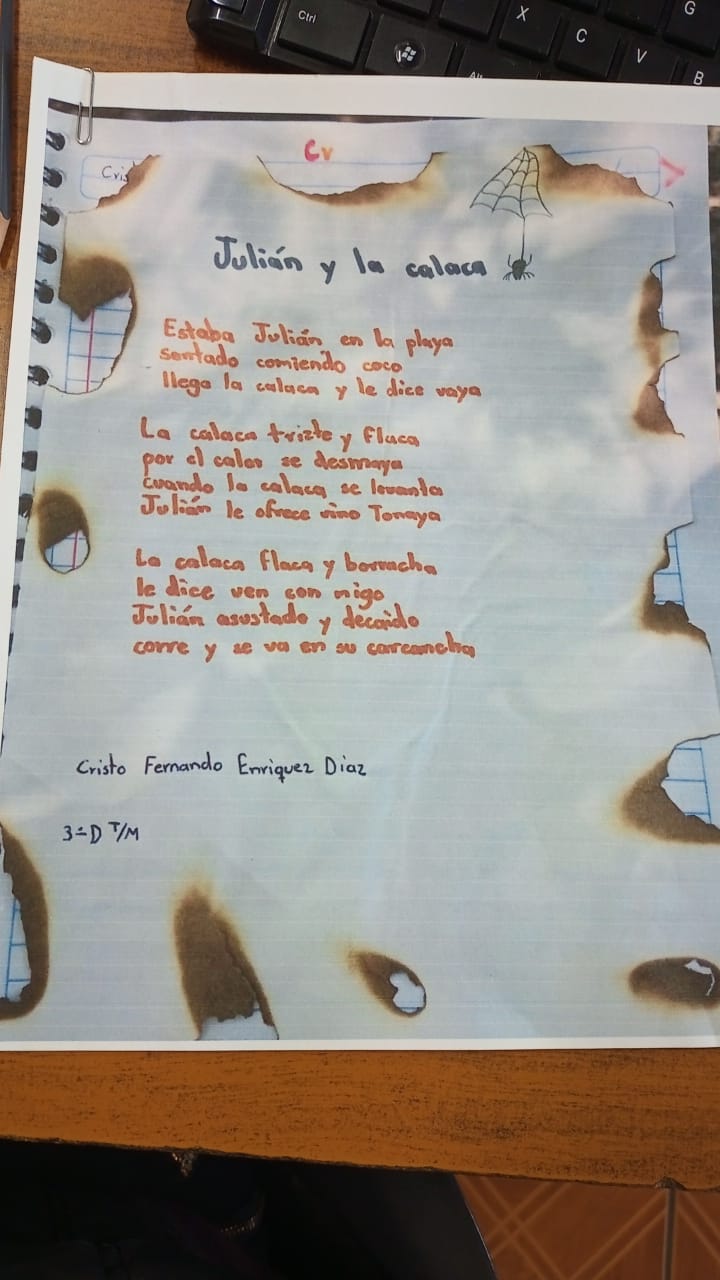 Ctrl
X
C
V
B
G
Alt
Cris
Cv
Julián y la calaca
Estaba Julián en la playa
sentado comiendo coco
llego la calaca y le dice vaya
La calaca trizte y flaca
por el calor se desmaya
cuando la calaca se levanta
Julián le ofrece vino Tonaya
La calaca flaca y borracha
le dice ven con migo
Julián asustado y decaido
corre y se va en su carcancha
Cristo Fernando Enriquez Diaz
3=D T/M